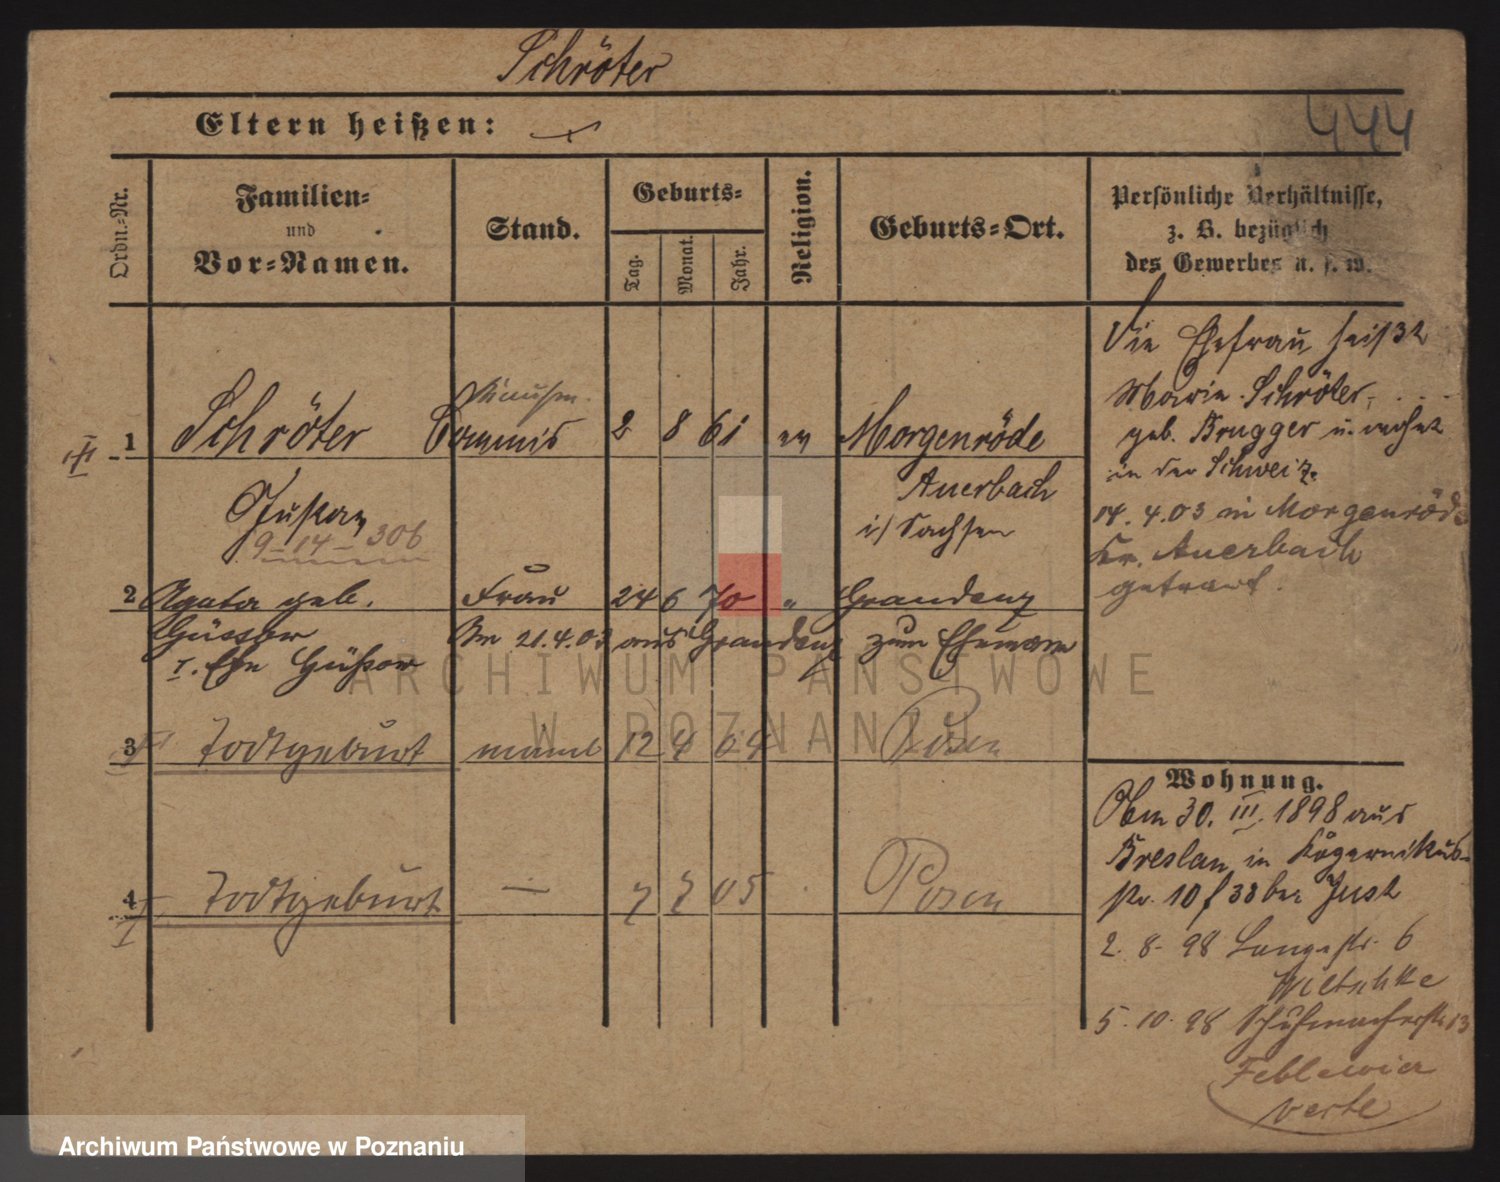 Schröter
Eltern heißen:
444
Ordn.=Nr.
Familien=
und
Vor=Namen.
Stand.
Geburts=
Tag.
Monat.
Jahr.
Religion.
Geburts=Ort.
Persönliche Verhältnisse,
z. B. bezüglich
des Gewerbes u. s. w.
1 Schröter Commis 2 8 61 ev Morgenröde
Auerbach
i/ Sachsen
Gustav
9-14-306
2 Agata geb. Frau 24 6 70 " Graudenz
Am 21.4.03 aus Graudenz zum Ehemann
I. Ehe
3 Todtgeburt männl 12 4 04 Posen
4 Todtgeburt — 7 7 05 Posen
Die Ehefrau heißt
Marie Schröter,
geb. Brugger u. wohnt
in der Schweiz.
14. 4. 03 in Morgenröde
Kr. Auerbach
getraut.
Wohnung.
Am 30. III. 1898 aus
Breslau, in
str. 10 bei Just
2. 8. 98 Langestr. 6
5. 10. 98 Schuhmacherstr 13
verte
ARCHIWUM PAŃSTWOWE
W POZNANIU
Archiwum Państwowe w Poznaniu